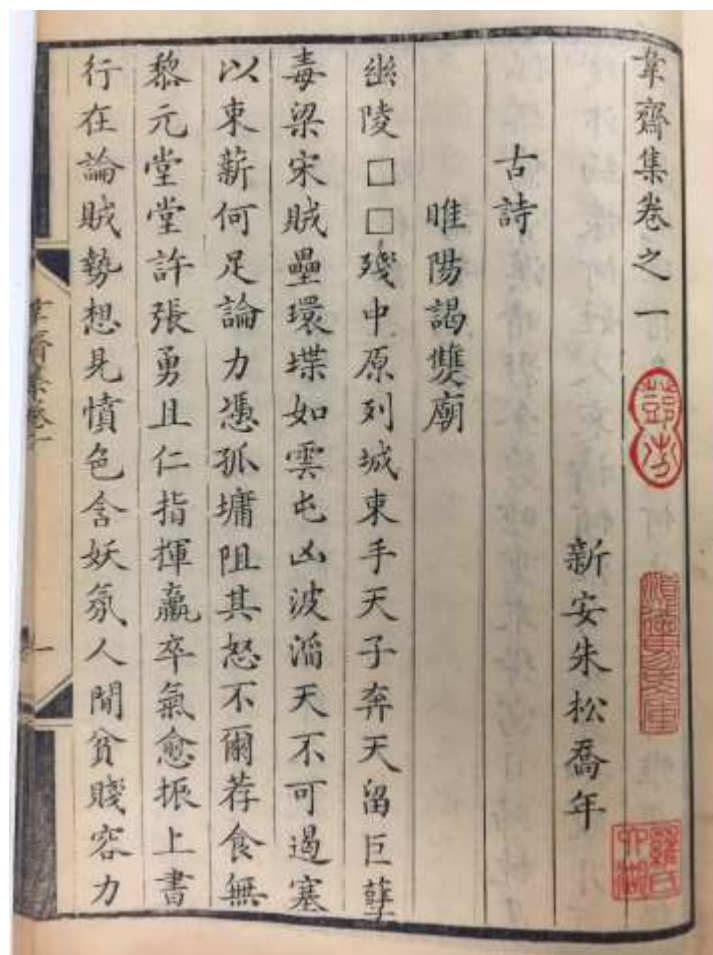 韋齋集卷之一
新安朱松喬年
古詩
睢陽謁雙廟
幽陵□□殘中原列城束手天子奔天留巨孽
毒梁宋賊壘環堞如雲屯凶波滔天不可遏塞
以束薪何足論力憑孤墉阻其怒不爾荐食無
黎元堂堂許張勇且仁指揮羸卒氣愈振上書
行在論賊勢想見憤色含妖氛人間貧賤容力
韋齋集卷一
一